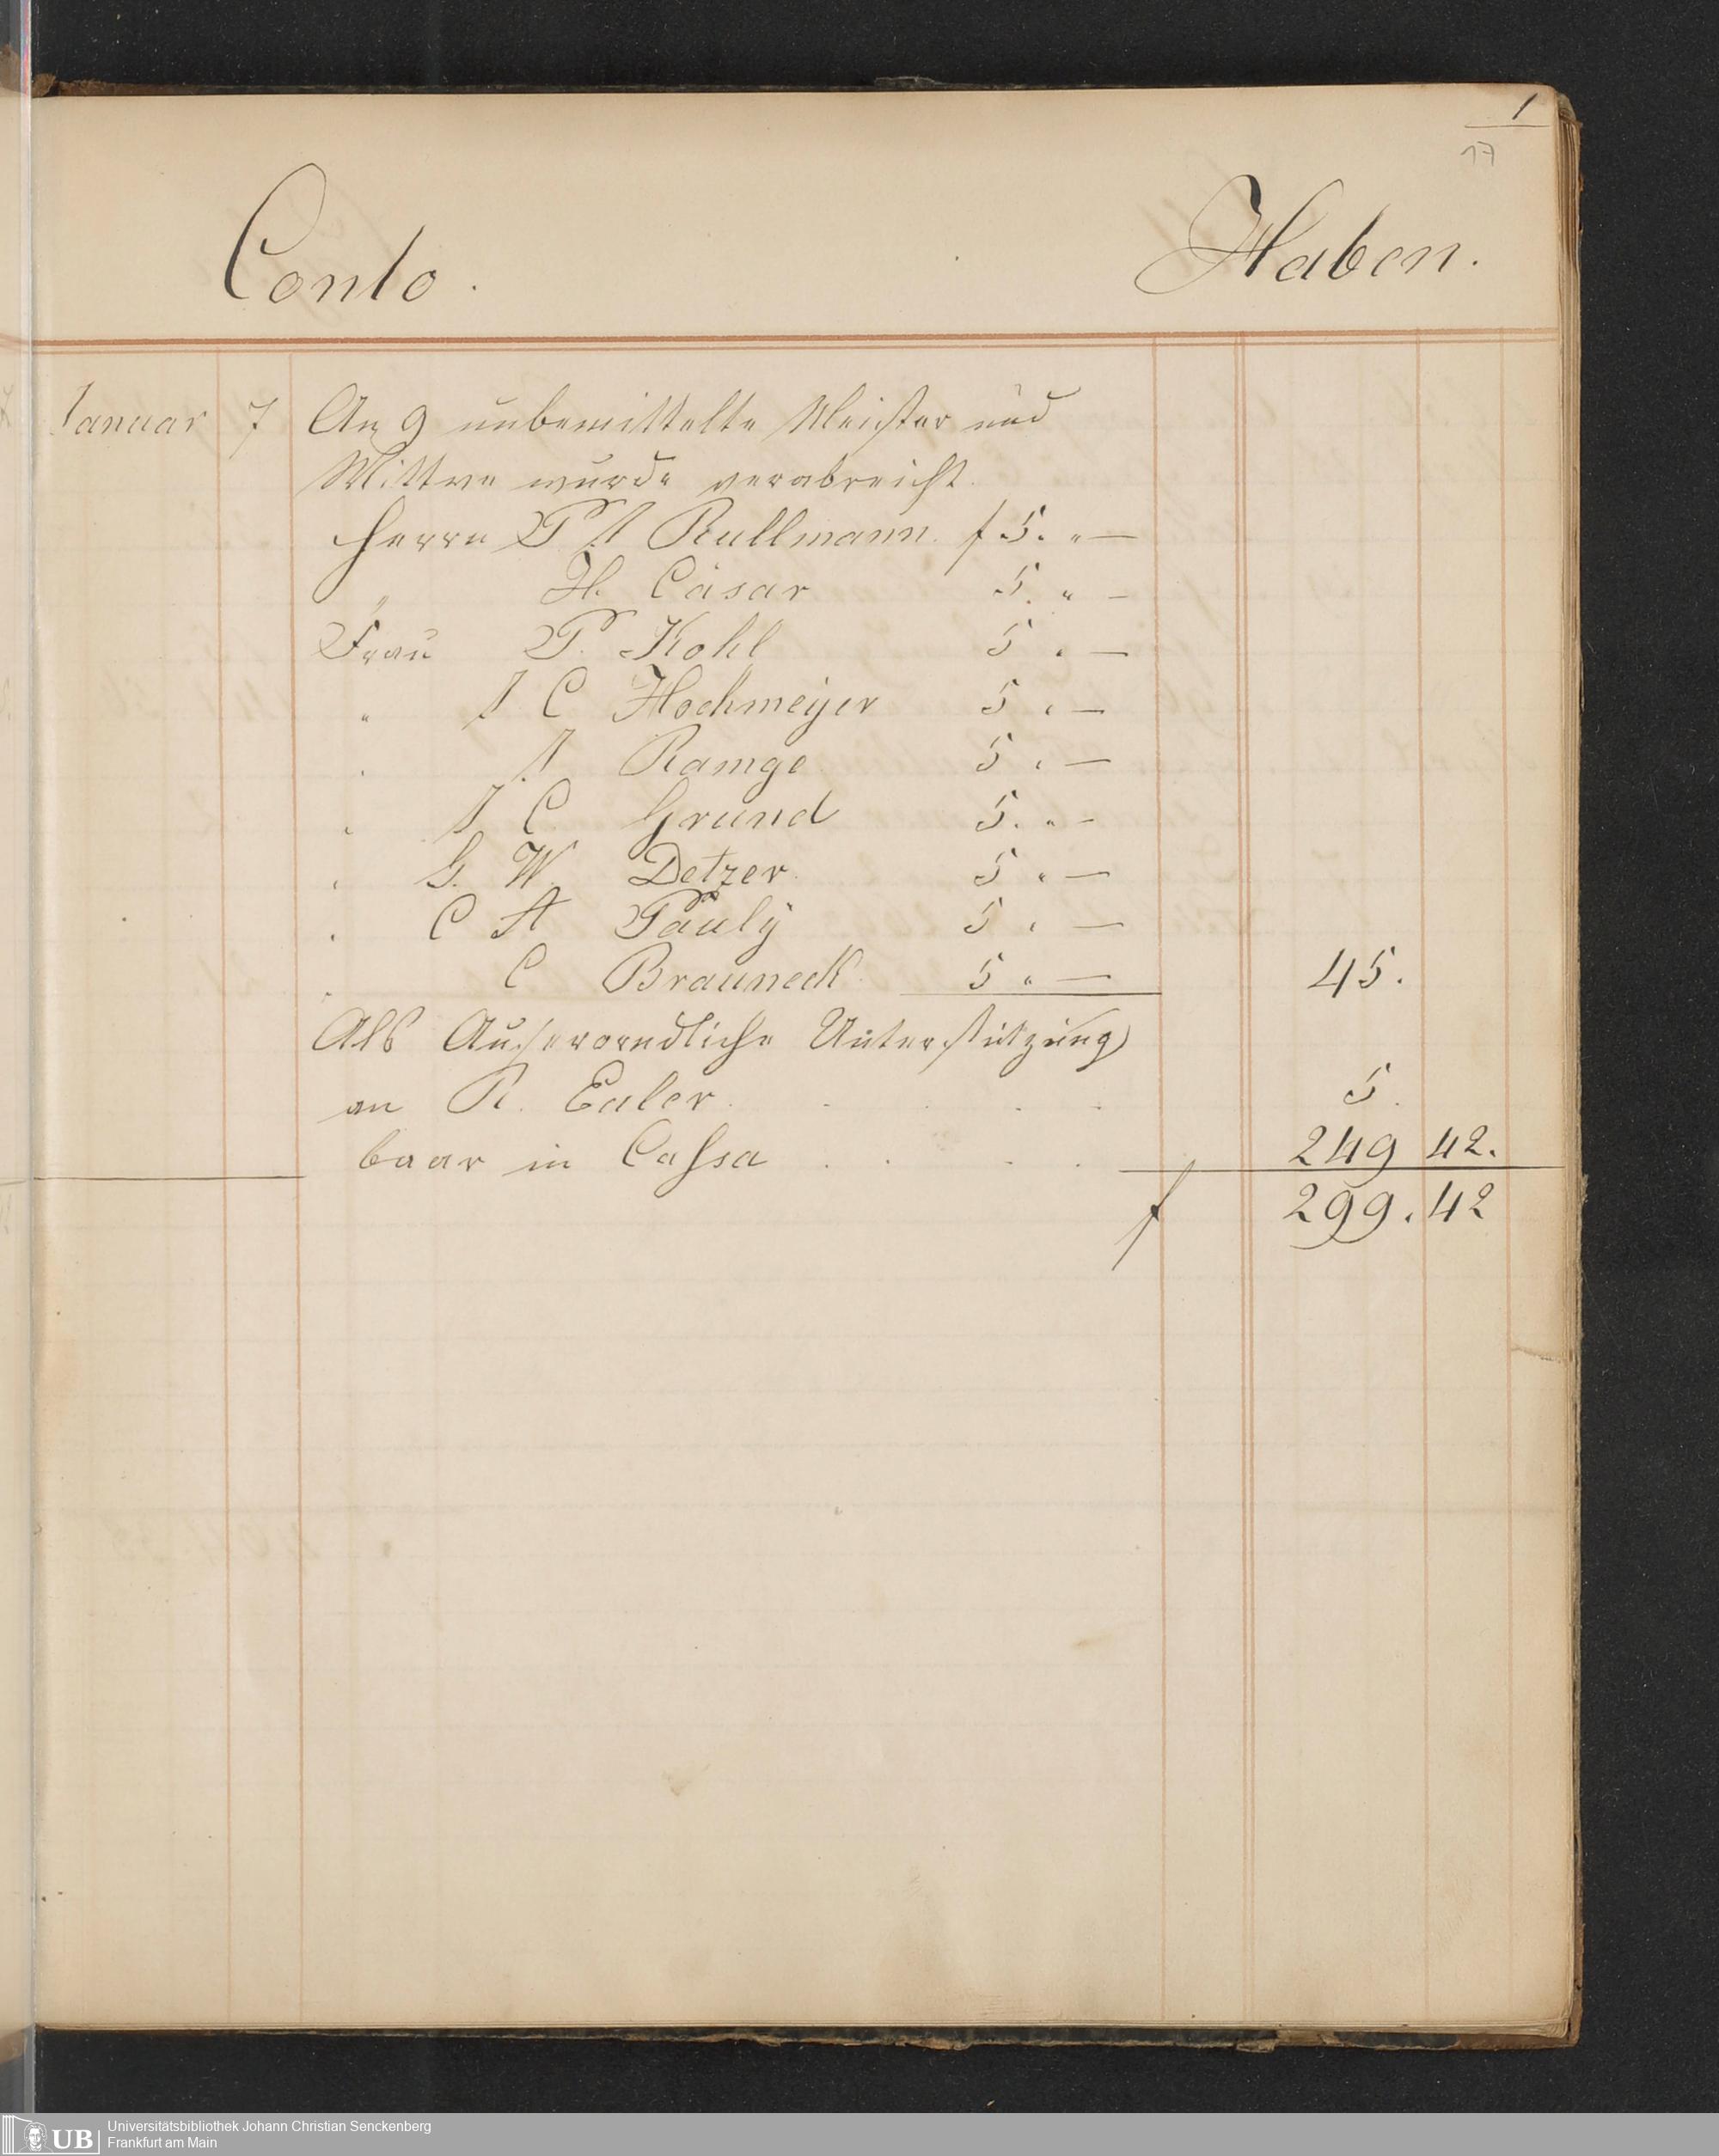 1
17
Conto. Haben.
Januar 7 An 9 unbemittelte Meister und
Wittwe wurde verabreicht.
Herrn P J Rullmann. f 5. " —
" H. Cäsar 5. " —
Frau P. Kohl 5 " —
" J C Hochmeÿer 5 " —
" J Ramge 5 " —
" J C Grund 5. " —
" G. W. Detzer 5 " —
" C A Pauly 5 " —
" C Brauneck 5 " — 45.
Als Außeroendliche Unterstützung
an R. Euler . . . . 5.
baar in Cassa . . . . 249 42.
f 299. 42
UB Universitätsbibliothek Johann Christian Senckenberg
Frankfurt am Main